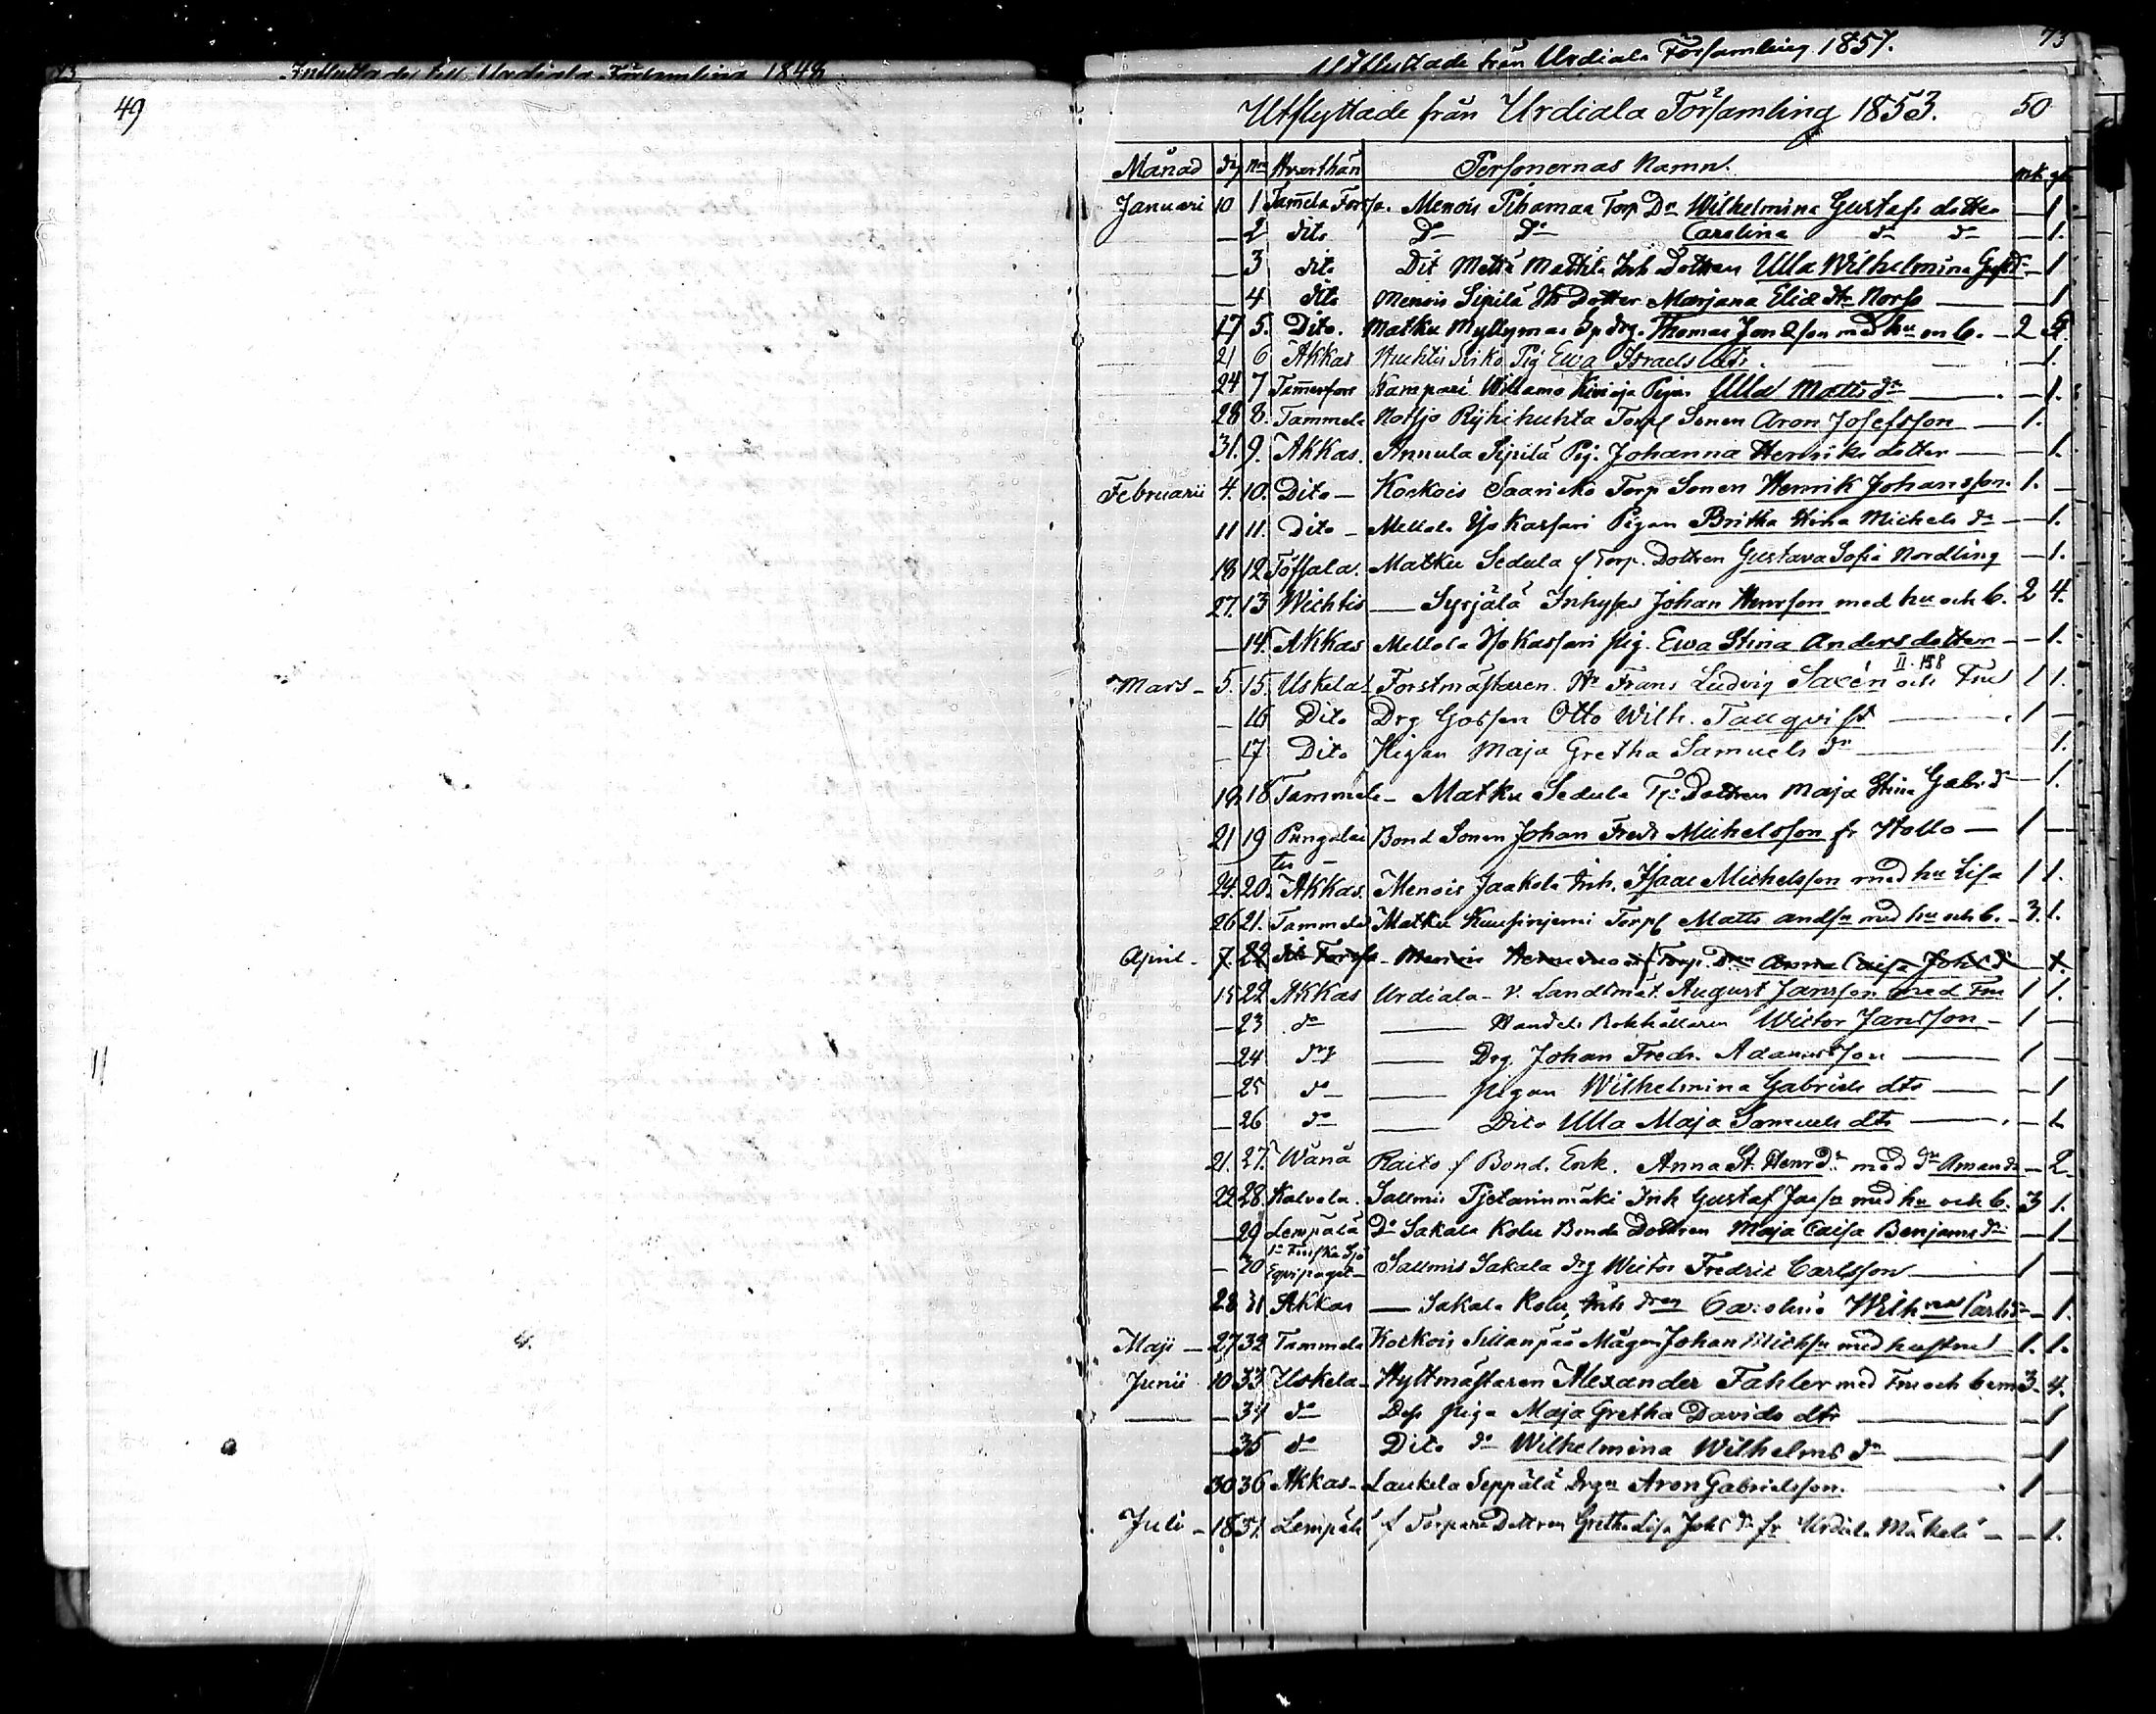 Inflyttade till Urdiala Församling 1848
49
73
Utflyttade från Urdiala Församling 1857.
Utflyttade från Urdiala Församling 1853. 50
Månad dag Nro Hvarthän Personernas Namn. mk qk
Januari 10 1 Tamela Forssa. Menois Pihamaa Torp Dr Wilhelmina Gustafs dotter — 1
— 2 dito Do Do Carolina do do — 1.
— 3 dito Dit Mattila Inh Dottren Ulla Wilhelmina — 1
— 4 dito Menois Sipilä Dotter Marjana Norrs — 1
17 5. Dito. Matku Myllymaa drg. Thomas med hu o b. — 2
21 6 Akkas Pig Ewa Israels dtr. — 1.
24 7 Tamerfors Kampari Pigan Ulla Matts dr — 1.
28 8. Tammela Notsjö Torp Sonen Aron Josefsson — 1.
31. 9. Akkas. Annula Sipilä Pig. Johanna Henriks dotter — 1.
Februarii 4. 10. Dito — Koskois Saari Torp Sonen Henrik Johansson. 1. —
11 11. Dito — Mellola Pigan Britha Stina Michels dr — 1.
18 12 Töfsala. Matku Sedula f Torp. Dottren Gustava Sofia Nordling — 1.
27. 13 Wichtis — Syrjälä Inhyses Johan Henrsson med hu och b. 2 4.
— 14. Akkas Mellola pig. Ewa Stina Anders dotter — 1.
Mars — 5. 15. Uskela Forstmästaren Hr Frans Ludvig Saxén och Fru 1 1.
II. 158
— 16 Dito Drg Gossen Otto Wilh. Tallqvist 1 —
— 17 Dito Pigan Maja Gretha Samuels dr — 1.
19. 18 Tammela — Matku Sedula Dottren Maja Stina Gabr d — 1.
21 19 Pungalai Bond Sonen Johan Fredr Michelsson fr Hollo — 1 —
tis
24. 20. Akkas. Menois Jaakola Inh. Isaac Michelsson med hu Lisa 1 1.
26 21. Tammela Matku Kuusinjemi Torp Matts Andsn med hu och b. — 3. 1.
April — 7. 22 Forssa — Menois Torp. Anna Caisa Johs d — 1.
15 22 Akkas Urdiala — v. Landtmät. August Jansson med Fru 1 1.
— 23 do — Handels Bokhållaren Wictor Jansson — 1 —
— 24 — Drg. Johan Fredr. Adamsson 1 —
— 25 do — pigan Wilhelmina Gabriels dtr — 1
— 26 do — Dito Ulla Maja Samuels dtr — 1
21. 27. Wånå Raito f Bond. Enk. Anna St. Henr dr med dr Amanda — 2
22 28. Kalvola. Salmis Inh Gustaf med hu och b. 3 1.
— 29 Lempälä Do Sakala Kolu Bonde Dottren Maja Caisa Benjams dr — 1
1a Finska Sjö
— 30 Eqvipaget — Salmis Sakala drg Wictor Fredric Carlsson 1 —
28 31 Akkas — Sakala Kolu Inh — 1.
Maji — 27 32 Tammela Koskois Sillanpää Mågen Johan med hustru 1. 1.
Junii 10 33 Uskela — Hyttmästaren Alexander Fahler med Fru och barn 3. 4.
— 34 do Dess piga Maja Gretha Davids dtr — 1
— 35 do Dito do Wilhelmina Wilhelms dr — 1
30 36 Akkas — Laukela Seppälä Drgn Aron Gabrielsson. 1 —
Juli — 18 37. Lempälä f Torpare Dottren Gretha Lisa Johs dr fr Urdiala Mäkelä — 1.